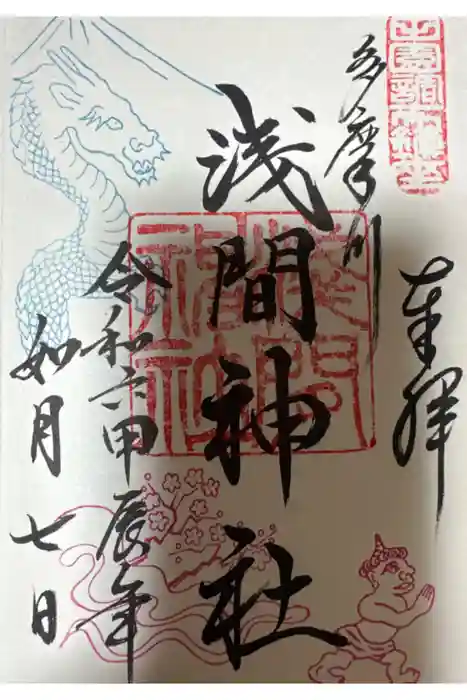 奉拝
多摩川
浅間神社
令和六甲辰年
如月七日
浅間神社